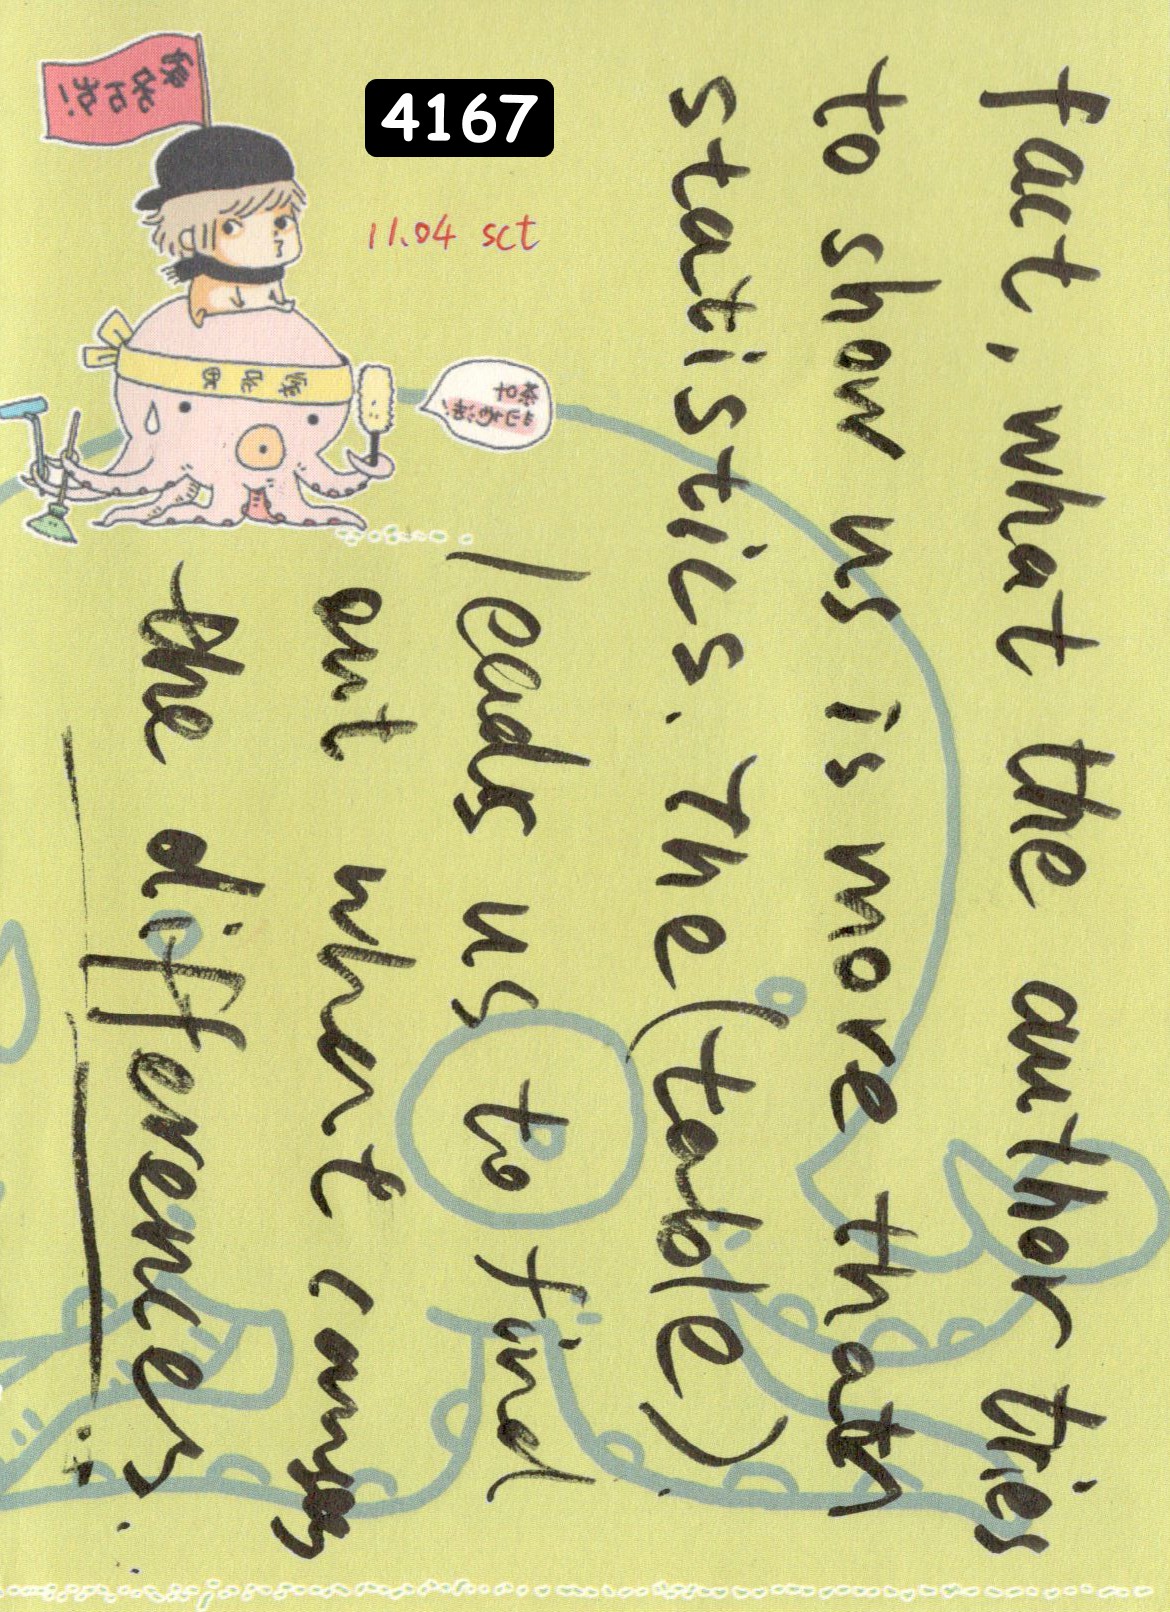 4167
11.04 sct
fact, what the author tries
to show us is more than
statistics. The (table)
leads us to find
out what causes
the differences.